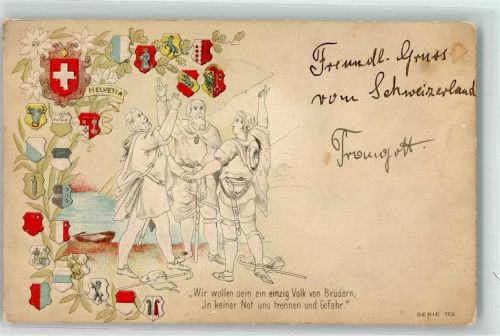 HELVETIA
Freundl. Gruss
vom Schweizerland
Traugott.
„Wir wollen sein ein einzig Volk von Brüdern,
In keiner Not uns trennen und Gefahr."
SERIE 113.